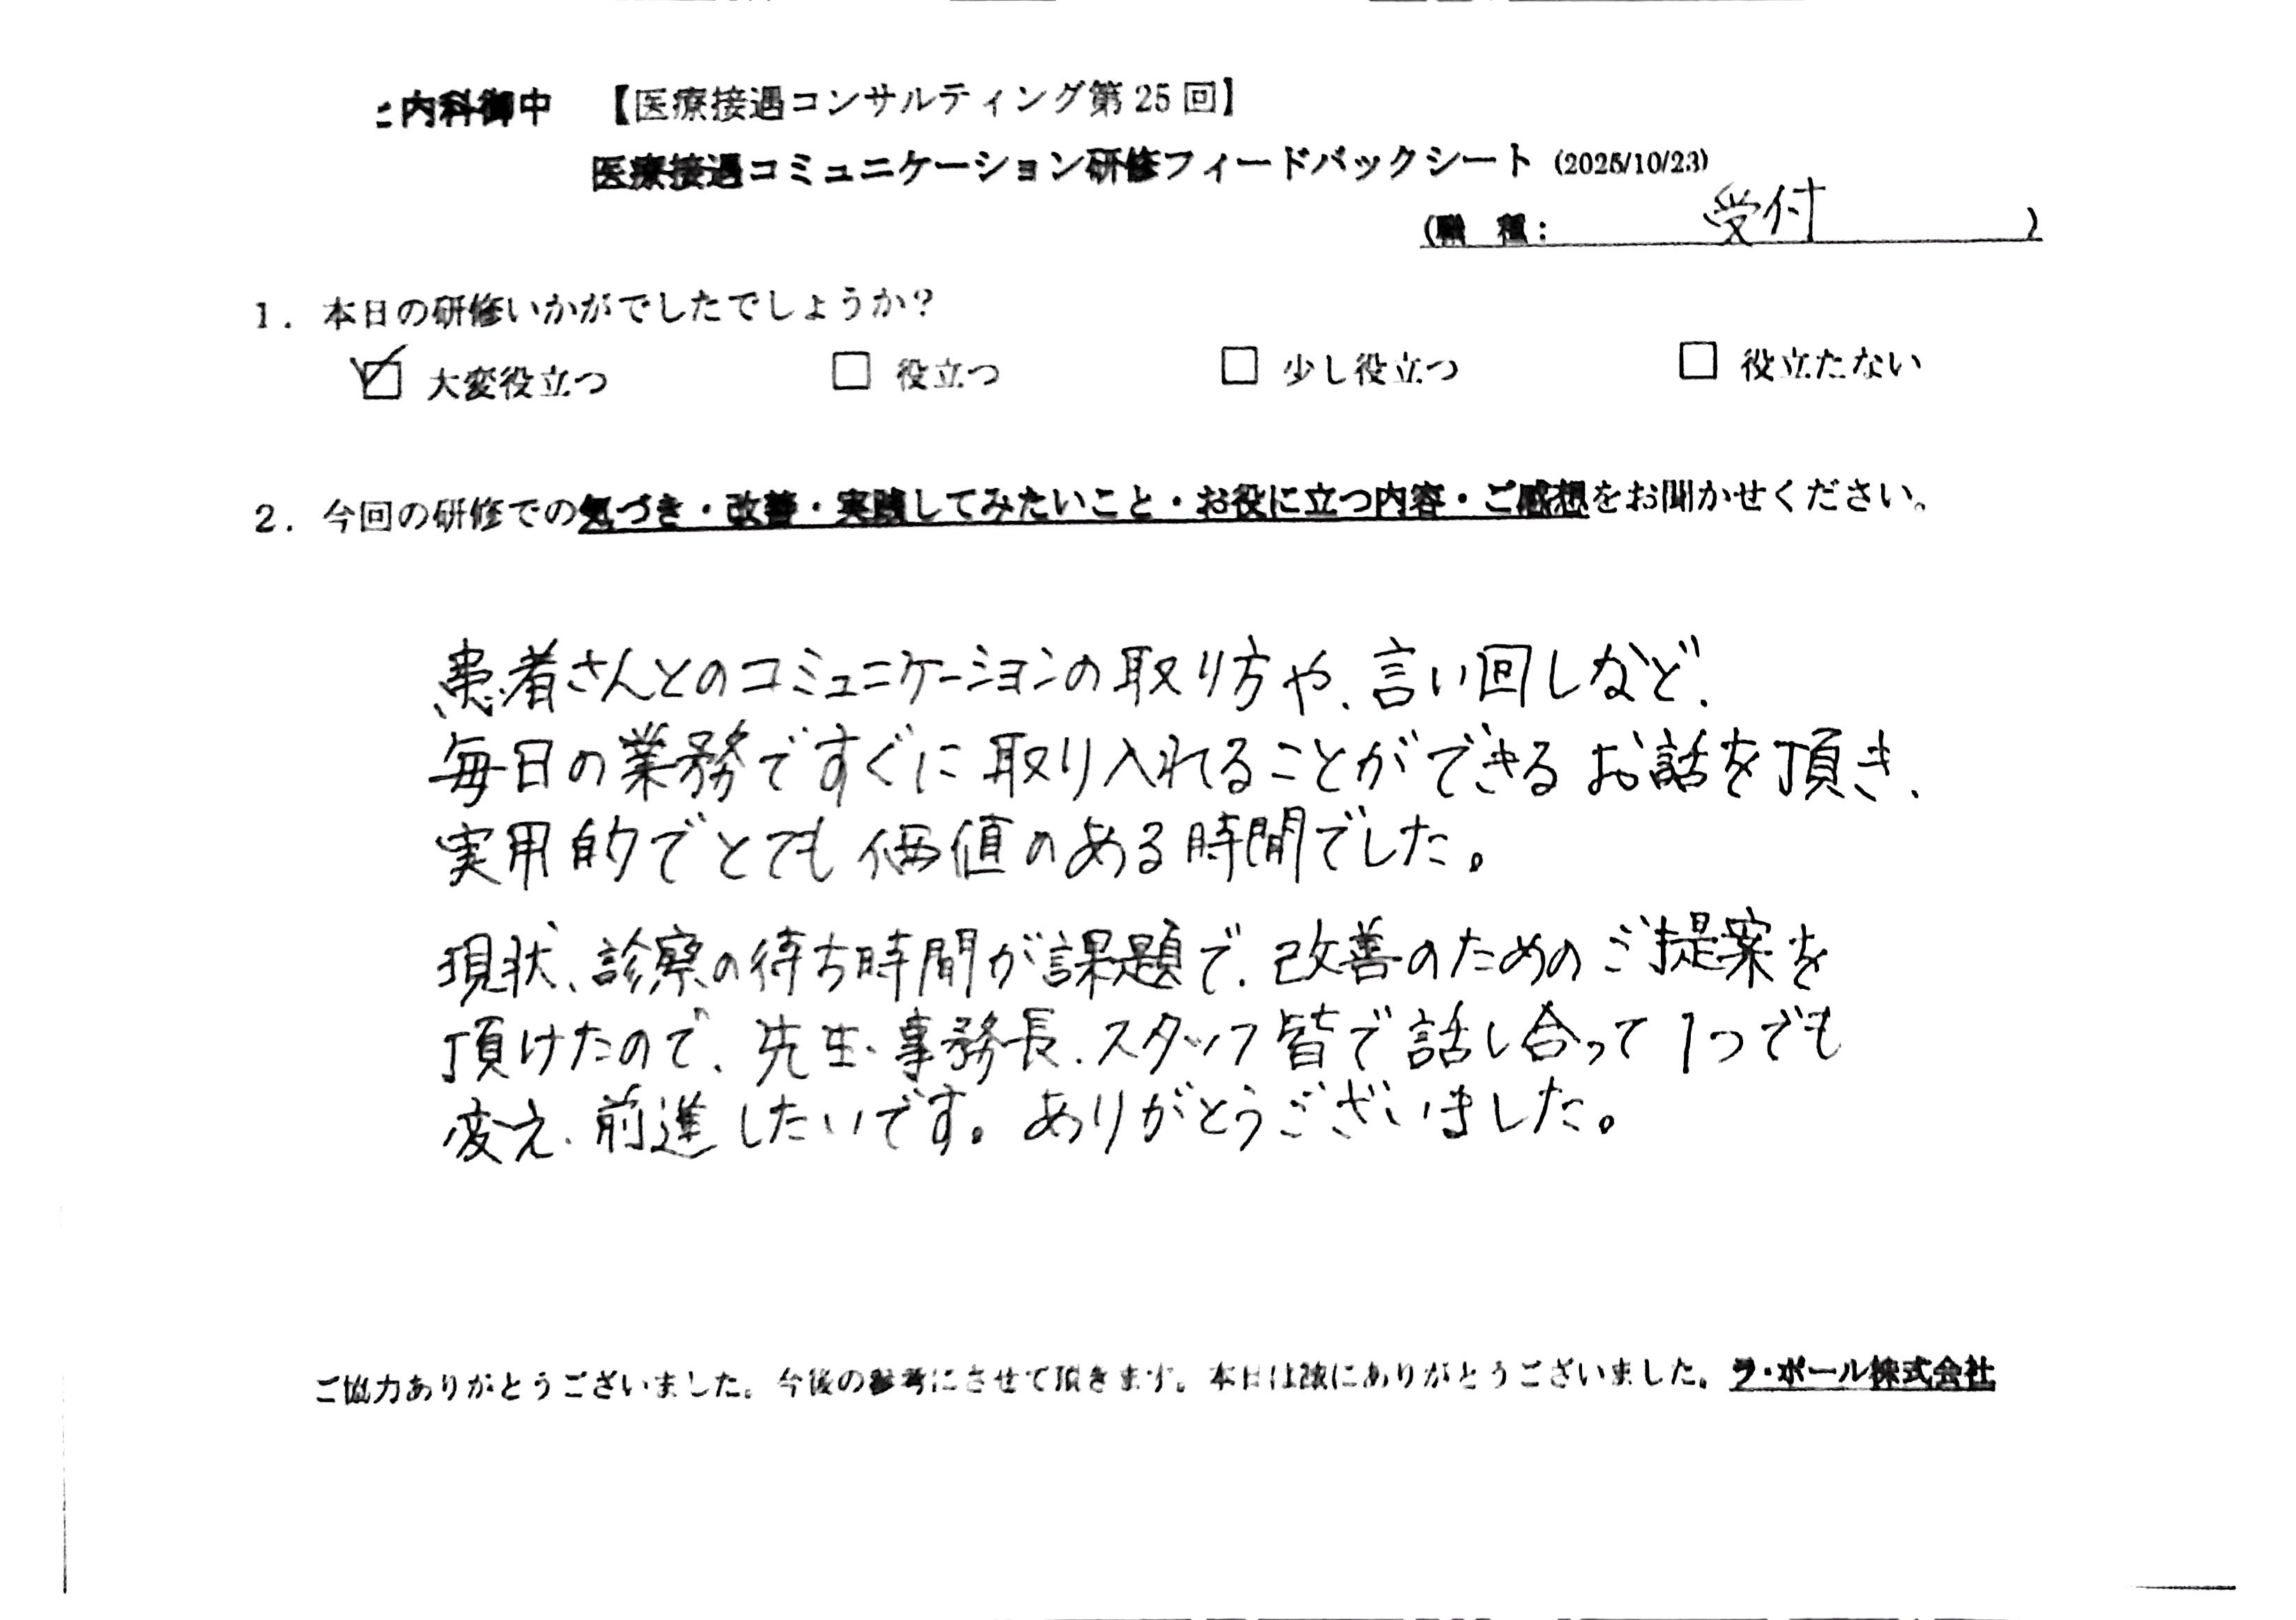 内科御中 【医療接遇コンサルティング第25回】
医療接遇コミュニケーション研修フィードバックシート (2025/10/23)
(職 種: 受付 )
1. 本日の研修いかがでしたでしょうか?
☑ 大変役立つ □ 役立つ □ 少し役立つ □ 役立たない
2. 今回の研修での気づき・改善・実践してみたいこと・お役に立つ内容・ご感想をお聞かせください。
患者さんとのコミュニケーションの取り方や、言い回しなど、
毎日の業務ですぐに取り入れることができるお話を頂き、
実用的でとても価値のある時間でした。
現状、診察の待ち時間が課題で、改善のためのご提案を
頂けたので、先生、事務長、スタッフ皆で話し合って1つでも
変え、前進したいです。ありがとうございました。
ご協力ありがとうございました。今後の参考にさせて頂きます。本日は誠にありがとうございました。ラ・ポール株式会社